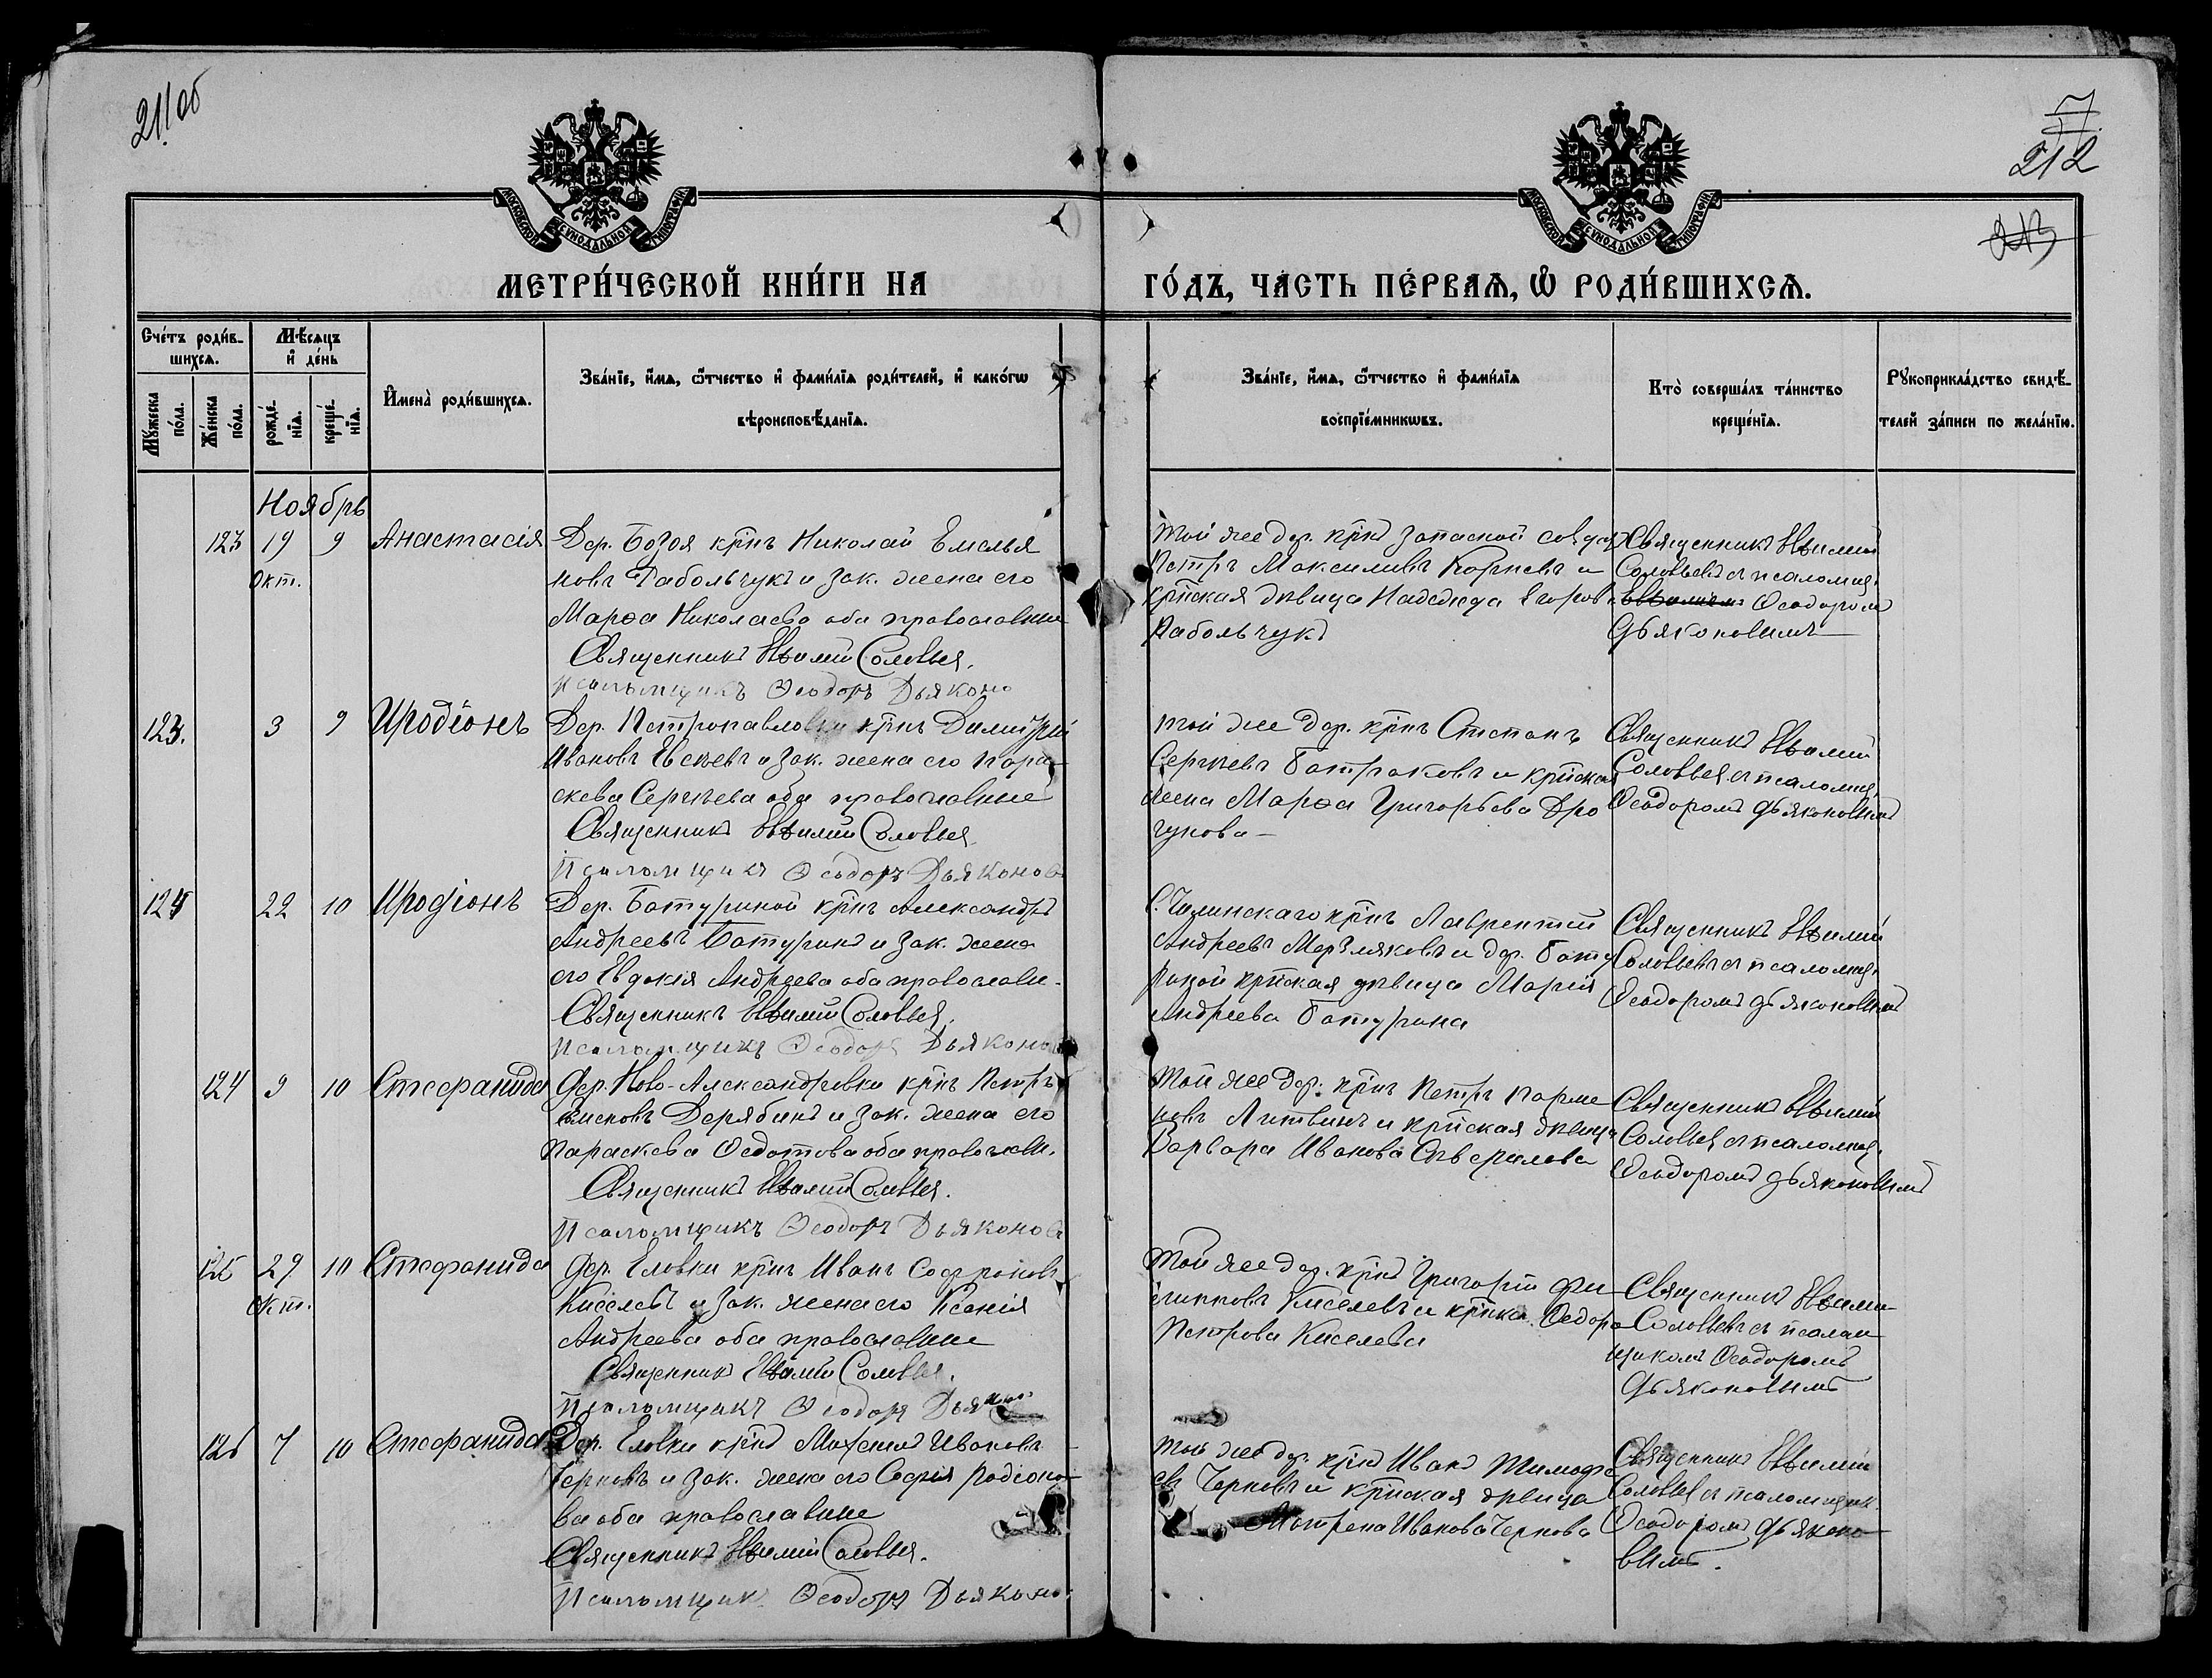 211 об
7
212
213
МОСКОВСКОЙ СѴНОДАЛЬНОЙ ТИПОГРАФІИ
МОСКОВСКОЙ СѴНОДАЛЬНОЙ ТИПОГРАФІИ
МЕТРИ́ЧЕСКОЙ КНИ́ГИ НА
ГО́ДЪ, ЧА́СТЬ ПЕ́РВАѦ, Ѽ РОДИ́ВШИХСѦ.
Сче́тъ роди́в-
шихсѧ.
Мꙋ́жеска по́ла.
Же́нска по́ла.
Мѣ́сѧцъ
и҆ де́нь
рожде́-
нїѧ.
креще́-
нїѧ.
И҆мена̀ роди́вшихсѧ.
Зва́нїе, и҆́мѧ, ѻ҆́тчество и҆ фами́лїѧ роди́телей, и҆ како́гѡ
вѣроисповѣ́данїѧ.
Зва́нїе, и҆́мѧ, ѻ҆́тчество и҆ фами́лїѧ
воспрїе́мникѡвъ.
Кто̀ соверша́лъ та́инство
креще́нїѧ.
Рꙋкоприкла́дство свидѣ́-
телей за́писи по жела́нїю.
Ноябрь
123 19 9 Анастасія Дер. Богоя крнъ Николай Емелья
Окт.
новъ Рабольчукъ и зак. жена его
Марѳа Николаева оба православные
Священникъ Евѳимій Соловьев.
Псаломщикъ Ѳеодоръ Дьяконо
той же дер. крнъ запасной
Петръ Максимивъ Корневъ и
крнская дѣвица Надежда Егоров
Рабольчукъ
Священникъ Евѳимій
Соловьевъ съ псаломщ.
Ѳеодоромъ
Дьяконовымъ
123. 3 9 Иродіонъ Дер. Петропавловки крнъ Димитрій
Ивановъ Евсѣевъ и зак. жена его Пара-
скева Сергѣева оба православные
Священникъ Евѳимій Соловьев
Псаломщикъ Ѳеодоръ Дьяконов
той же дер. крнъ Степанъ
Сергѣевъ Батраковъ и крнская
жена Марѳа Григорьева Дро
гунова
Священникъ Евѳимій
Соловьев съ псаломщ.
Ѳеодоромъ Дьяконовымъ
124 22 10 Иродіонъ Дер. Батуриной крнъ Александръ
Андреевъ Батуринъ и зак. жена
его Евдокія Андреева оба православн.
Священникъ Евѳимій Соловьев.
Псаломщикъ Ѳеодоръ Дьяконо
крнъ Лаврентій
Андреевъ Мерзляковъ и дер. Бату
риной крнская дѣвица Марія
Андреева Батурина
Священникъ Евѳимій
Соловьевъ съ псаломщ.
Ѳеодоромъ Дьяконовымъ
124 9 10 Стефанида Дер. Ново-Александровки крнъ Петръ
Дерябинъ и зак. жена его
Параскева Ѳедотова оба православн.
Священникъ Евѳимій Соловьев.
Псаломщикъ Ѳеодоръ Дьяконов
той же дер. крнъ Петръ Парме
новъ Литвинъ и крнская дѣвица
Варвара Иванова
Священникъ Евѳимій
Соловьев съ псаломщ.
Ѳеодоромъ Дьяконовымъ
125 29 10 Стефанида Дер. Еловки крнъ Иванъ Софроновъ
Окт.
Киселевъ и зак. жена его Ксенія
Андреева оба православные
Священникъ Евѳимій Соловьев.
Псаломщикъ Ѳеодоръ
той же дер. крнъ Григорій Фи
липповъ Киселевъ и крнка Ѳедора
Петрова Киселева
Священникъ Евѳими
Соловьевъ съ псалом
щикомъ Ѳеодоромъ
Дьяконовымъ
126 7 10 Стефанида Дер. Еловки крнъ Михаилъ Ивановъ
Черновъ и зак. жена его Софія Родіоно-
ва оба православные
Священникъ Евѳимій Соловьев.
Псаломщик Ѳеодоръ Дьяконо
той же дер. крнъ Иванъ Тимофе
евъ Черновъ и крнская дѣвица
Матрена Иванова Чернова
Священникъ Евѳимій
Соловьев съ псаломщик.
Ѳеодоромъ Дьяконо-
вымъ.